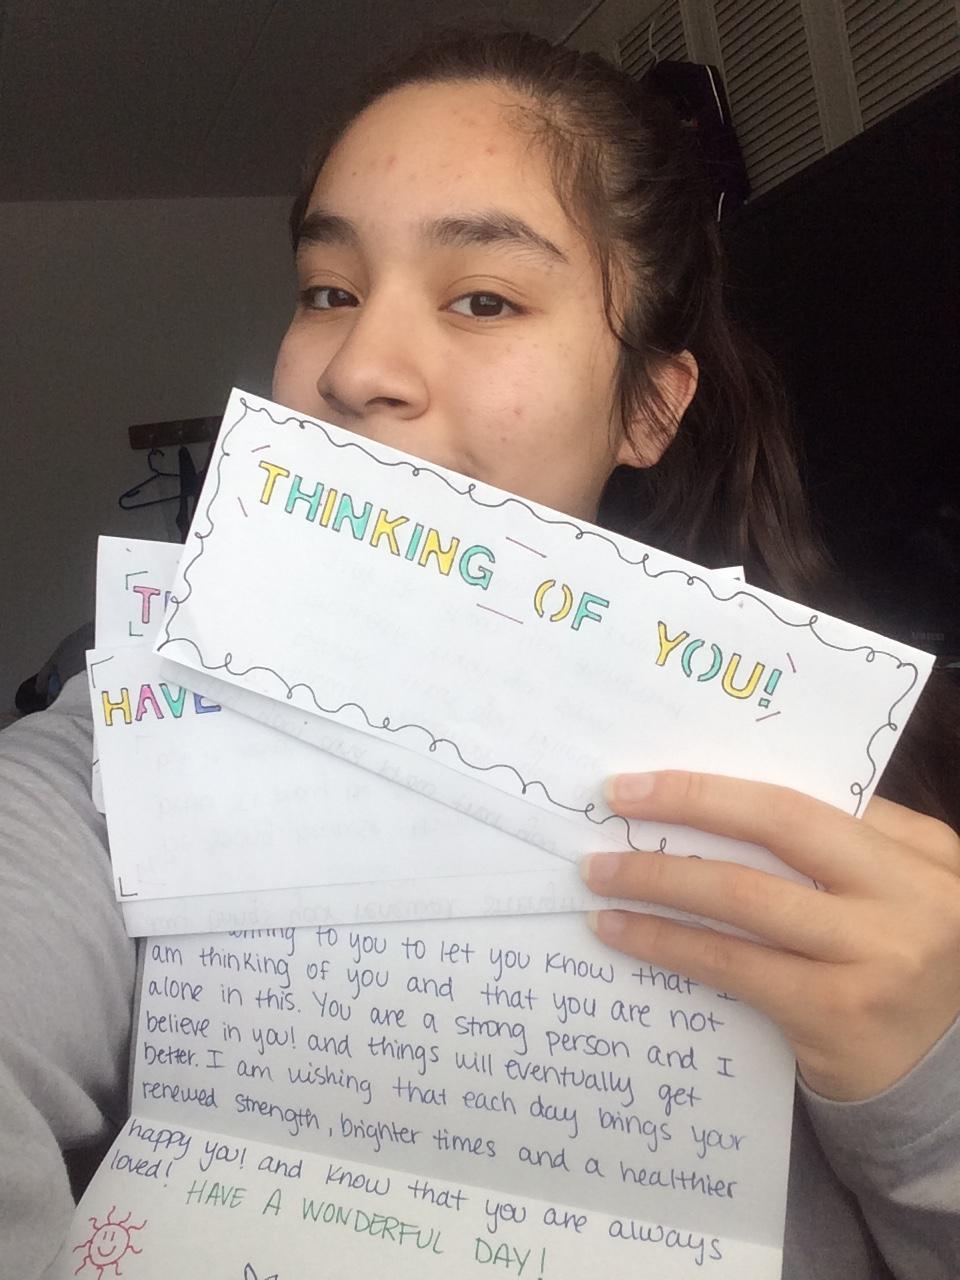 THINKING OF YOU!
T
HAVE
writing to you to let you know that I
am thinking of you and that you are not
alone in this. You are a strong person and I
believe in you! and things will eventually get
better. I am wishing that each day brings your
renewed strength, brighter times and a healthier
happy you! and know that you are always
loved!
HAVE A WONDERFUL DAY!